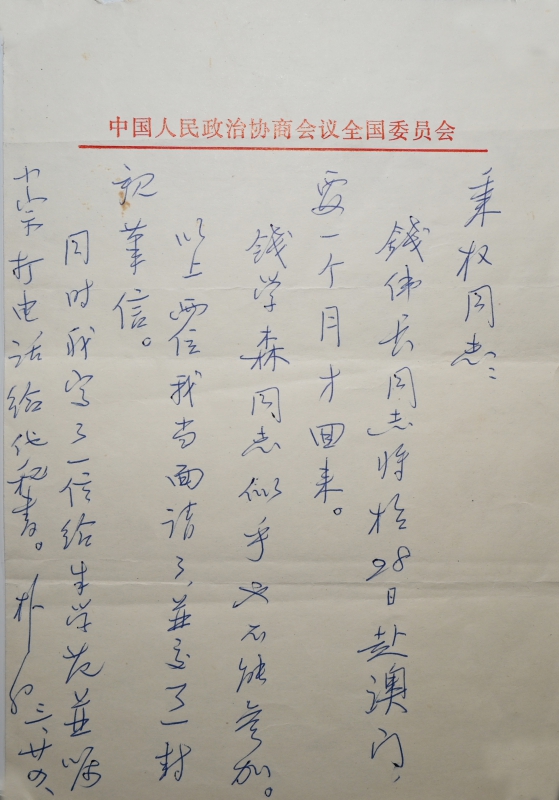 中国人民政治协商会议全国委员会
秉权同志：
錢伟长同志将於28日赴澳门，
要一个月才回来。
錢学森同志似乎也不能参加。
以上两位我当面请了，並交了一封
親筆信。
同时我写了一信给朱学范並嘱
小宗打电话给他秘书。
朴初
三、廿四、